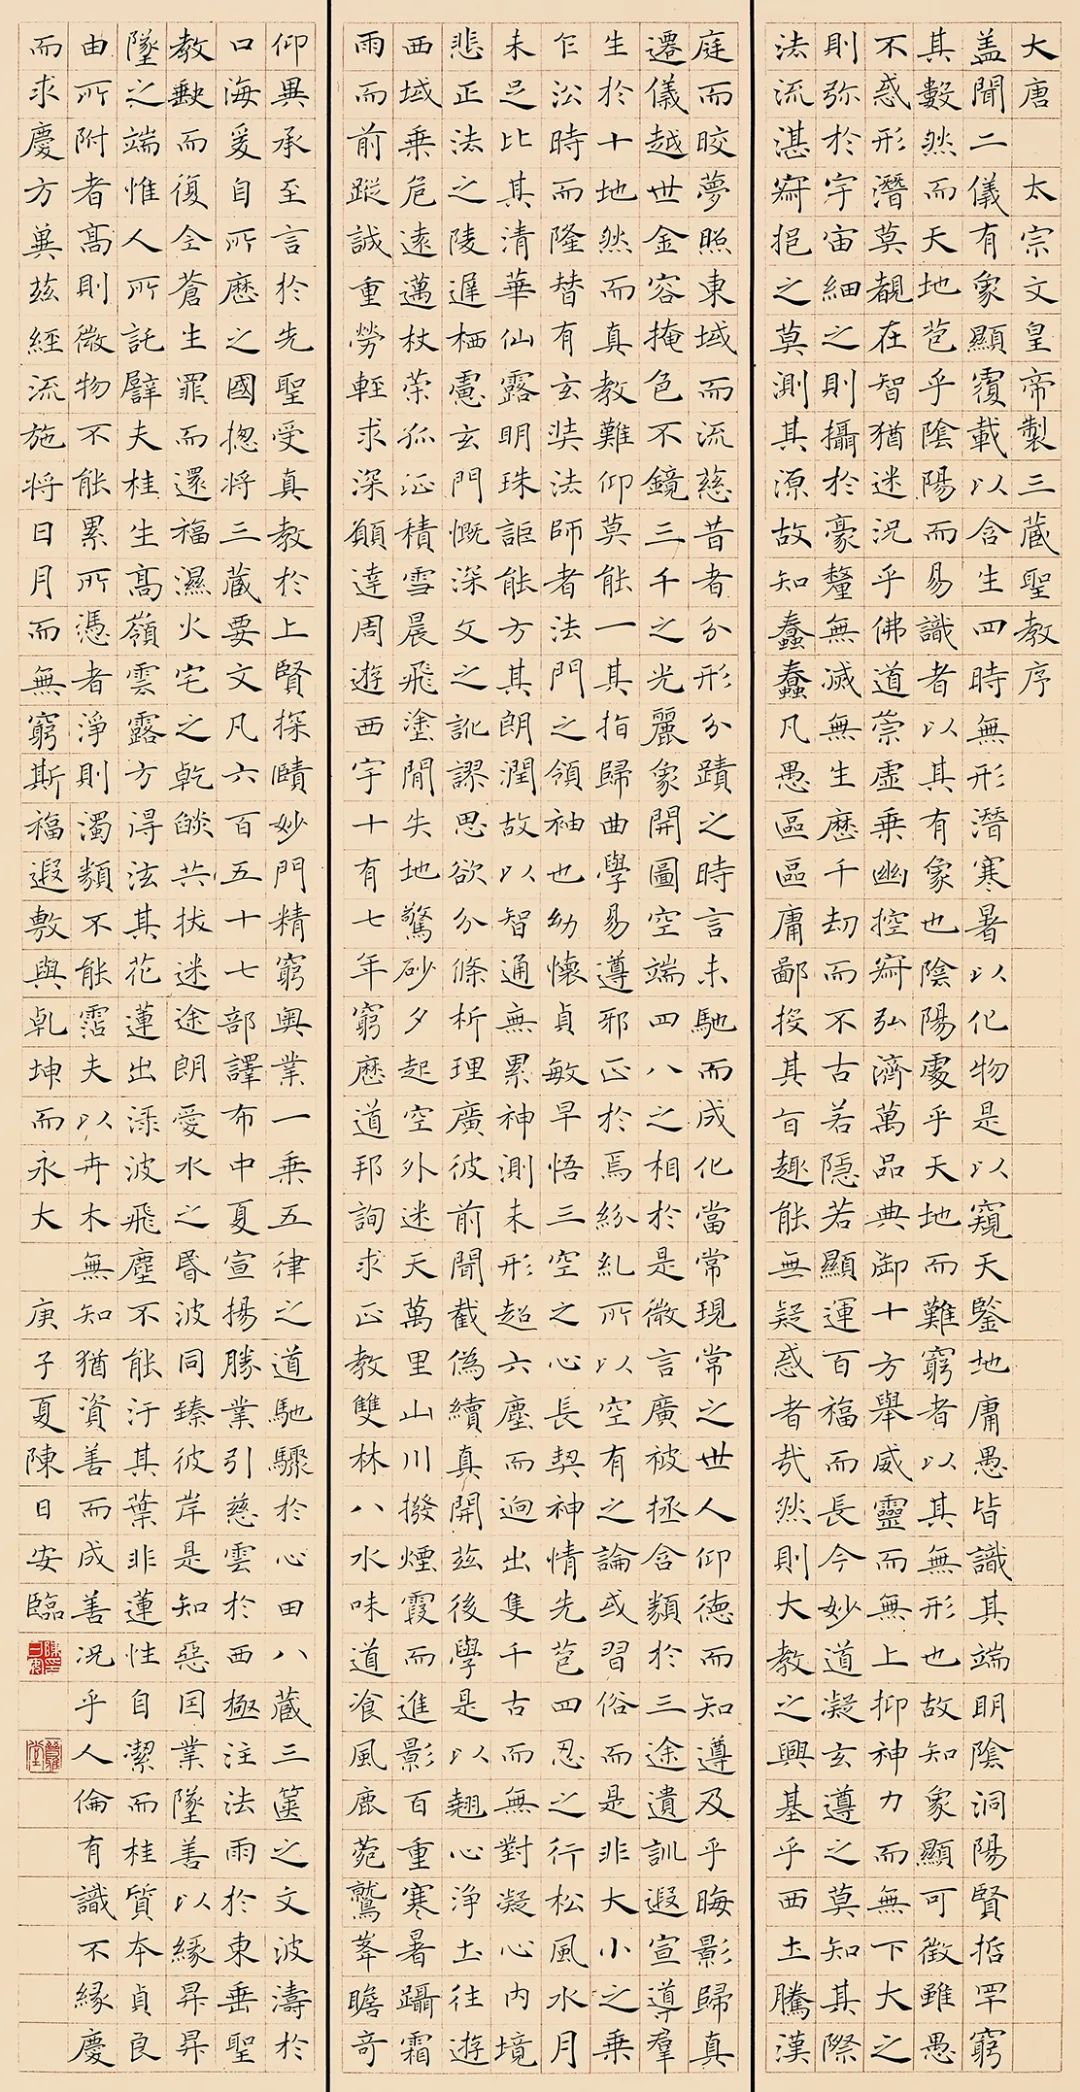 大唐 太宗文皇帝製三藏聖教序
盖聞二儀有象顯覆載以含生四時無形潛寒暑以化物是以窺天鑒地庸愚皆識其端明陰洞陽賢哲罕窮
其數然而天地苞乎陰陽而易識者以其有象也陰陽處乎天地而難窮者以其無形也故知象顯可徵雖愚
不惑形潛莫覩在智猶迷況乎佛道崇虛乘幽控寂弘濟萬品典御十方舉威靈而無上抑神力而無下大之
則弥於宇宙細之則攝於豪釐無滅無生歷千劫而不古若隱若顯運百福而長今妙道凝玄遵之莫知其際
法流湛寂挹之莫測其源故知蠢蠢凡愚區區庸鄙投其旨趣能無疑惑者哉然則大教之興基乎西土騰漢
庭而晈夢照東域而流慈昔者分形分蹟之時言未馳而成化當常現常之世人仰德而知遵及乎晦影歸真
遷儀越世金容掩色不鏡三千之光麗象開圖空端四八之相於是微言廣被拯含類於三途遺訓遐宣導羣
生於十地然而真教難仰莫能一其指歸曲學易遵邪正於焉紛糺所以空有之論或習俗而是非大小之乘
乍沿時而隆替有玄奘法師者法門之領袖也幼懷貞敏早悟三空之心長契神情先苞四忍之行松風水月
未足比其清華仙露明珠詎能方其朗潤故以智通無累神測未形超六塵而迥出隻千古而無對凝心內境
悲正法之陵遲栖慮玄門慨深文之訛謬思欲分條析理廣彼前聞截偽續真開茲後學是以翹心浄土往遊
西域乘危遠邁杖策孤征積雪晨飛塗閒失地驚砂夕起空外迷天萬里山川撥煙霞而進影百重寒暑躡霜
雨而前蹤誠重勞輕求深願達周遊西宇十有七年窮歷道邦詢求正教雙林八水味道飡風鹿菀鷲峯瞻奇
仰異承至言於先聖受真教於上賢探賾妙門精窮奧業一乘五律之道馳驟於心田八藏三篋之文波濤於
口海爰自所歷之國揔將三藏要文凡六百五十七部譯布中夏宣揚勝業引慈雲於西極注法雨於東垂聖
教缺而復全蒼生罪而還福濕火宅之乾燄共拔迷途朗愛水之昏波同臻彼岸是知惡因業墜善以緣昇昇
墜之端惟人所託譬夫桂生高嶺雲露方得泫其花蓮出淥波飛塵不能汙其葉非蓮性自潔而桂質本貞良
由所附者高則微物不能累所憑者淨則濁類不能霑夫以卉木無知猶資善而成善況乎人倫有識不緣慶
而求慶方冀茲經流施將日月而無窮斯福遐敷與乹坤而永大 庚子夏陳日安臨